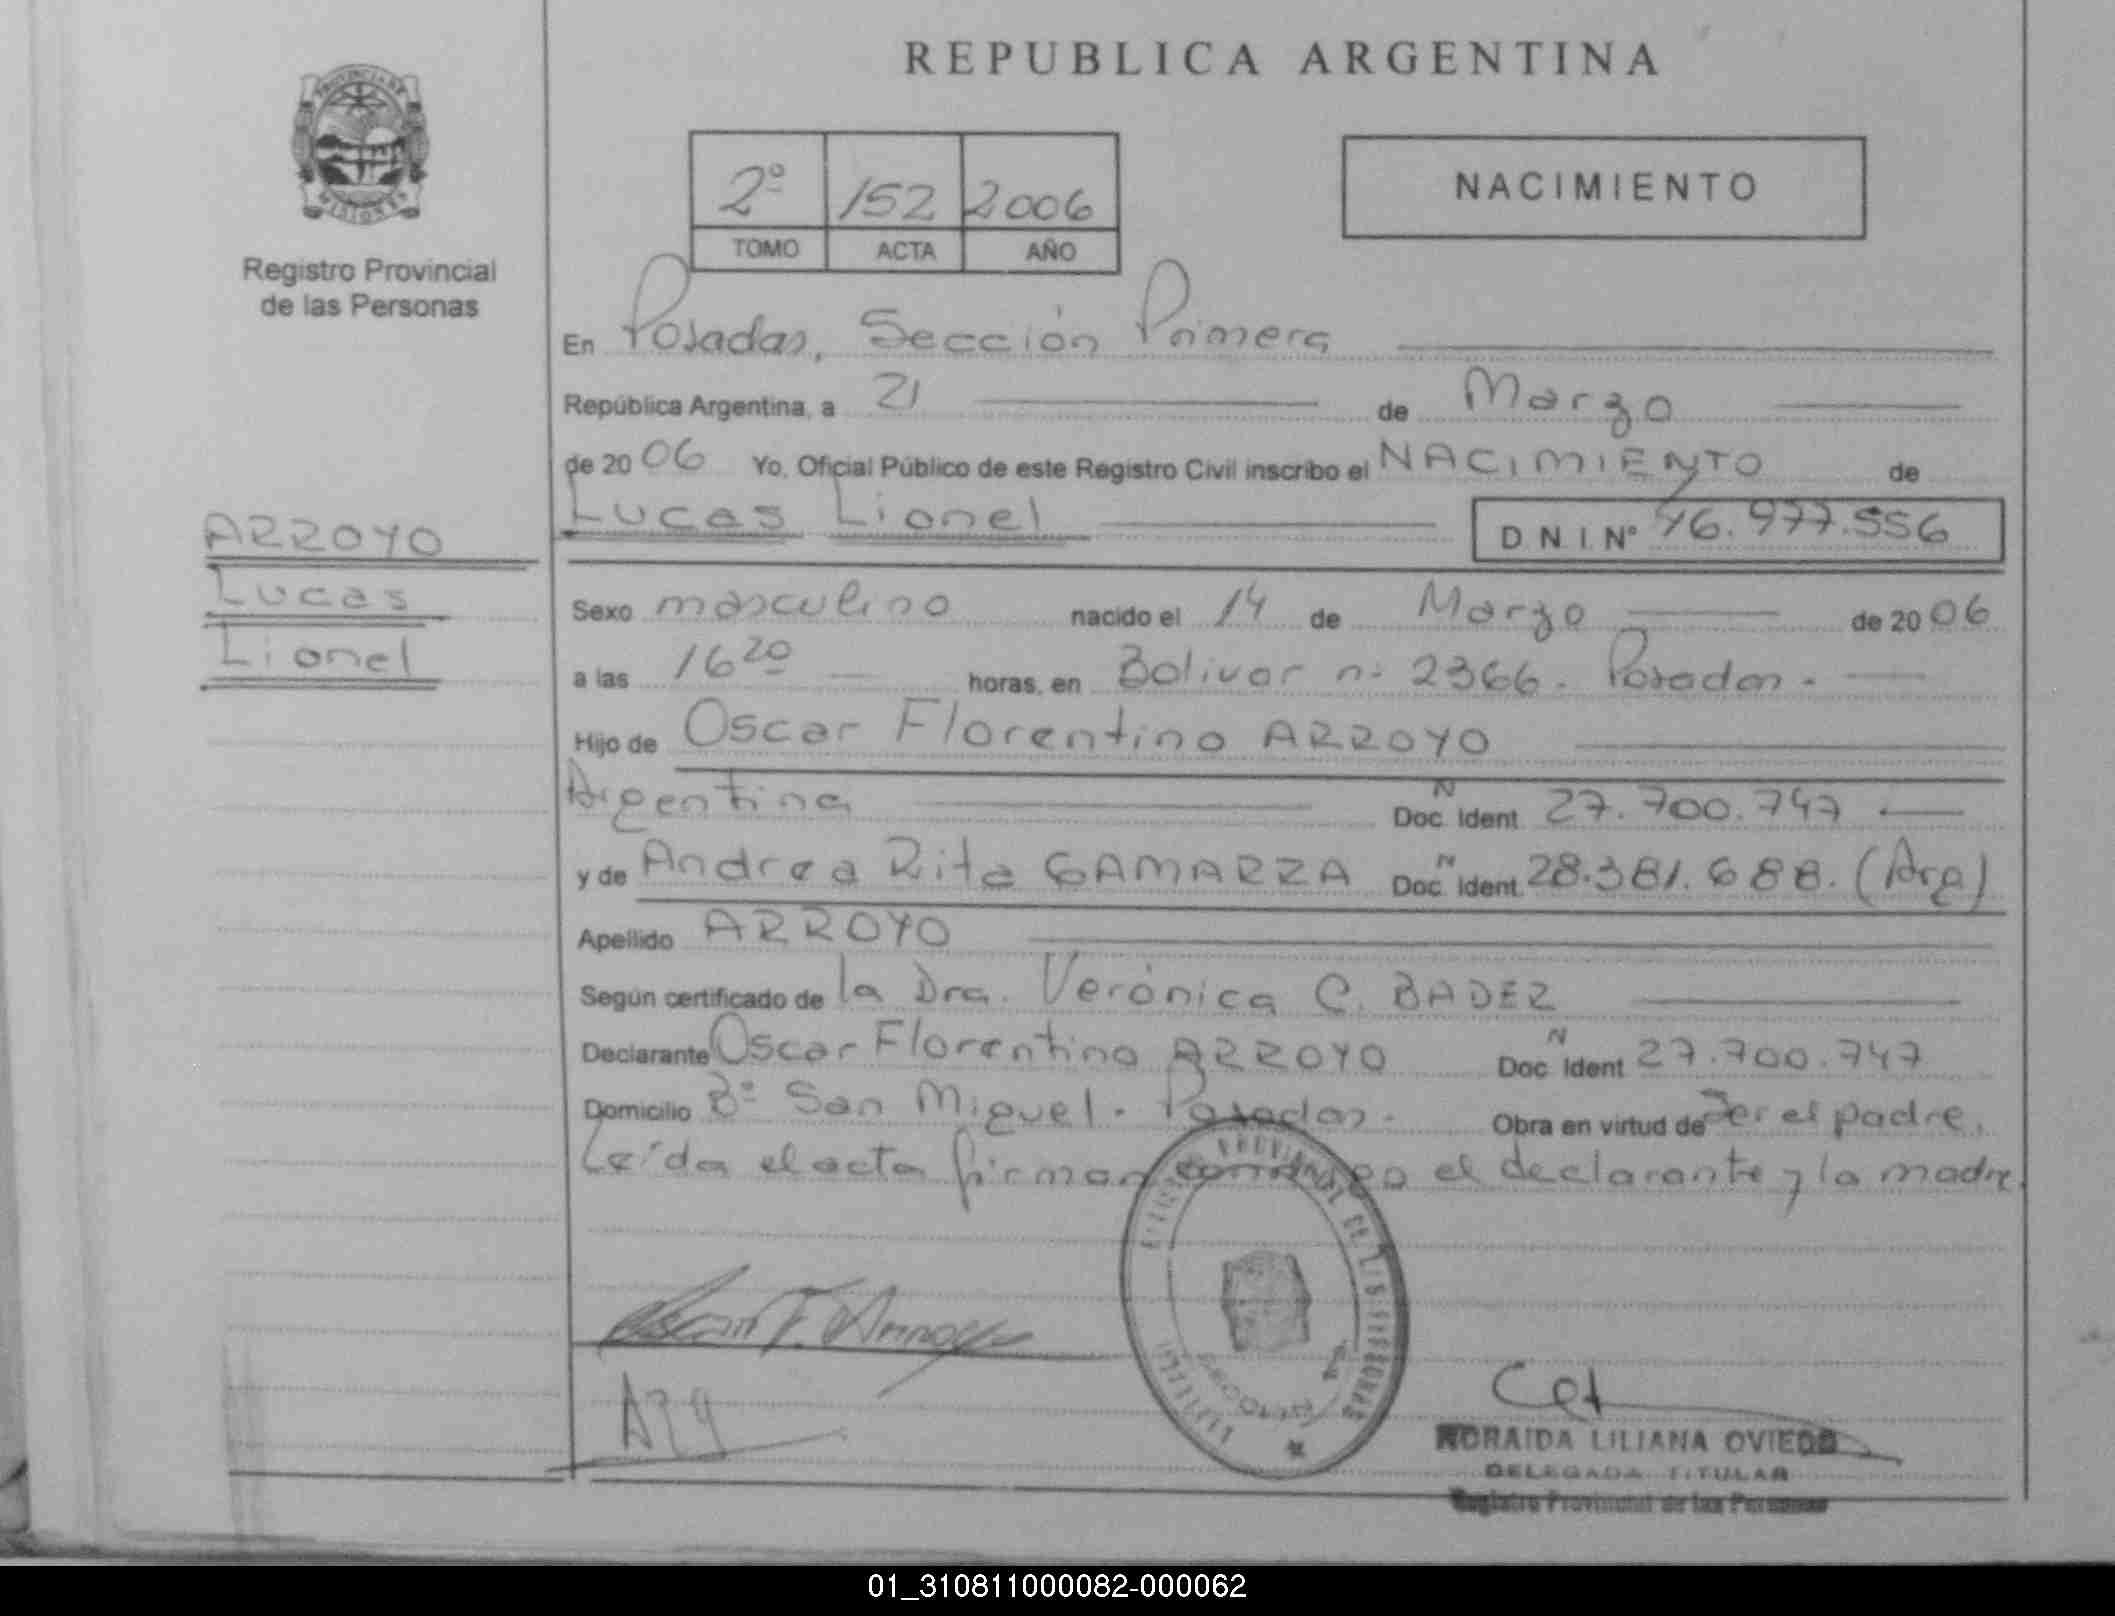 REPUBLICA ARGENTINA
PROVINCIA DE
MISIONES
Registro Provincial
de las Personas
2º 152 2006
TOMO ACTA AÑO
NACIMIENTO
En Posadas, Sección Primera
República Argentina, a 21 de Marzo
de 2006 Yo, Oficial Público de este Registro Civil inscribo el NACIMIENTO de
Lucas Lionel D.N.I. Nº 46.977.556
ARROYO
Lucas
Lionel
Sexo masculino nacido el 14 de Marzo de 2006
a las 16 20 horas, en Bolivar n: 2366. Posadas.
Hijo de Oscar Florentino ARROYO
Argentina Doc. N Ident. 27.700.747
y de Andrea Rita GAMARRA Doc. N Ident. 28.381.688. (Arg)
Apellido ARROYO
Según certificado de la Dra. Verónica C. BADEZ
Declarante Oscar Florentino ARROYO Doc. N Ident 27.700.747
Domicilio Bº San Miguel. Posadas. Obra en virtud de Ser el padre.
Leída el acta firman el declarante y la madre.
Oscar F. Arroyo
NORAIDA LILIANA OVIEDO
DELEGADA TITULAR
Registro Provincial de las Personas
01_310811000082-000062